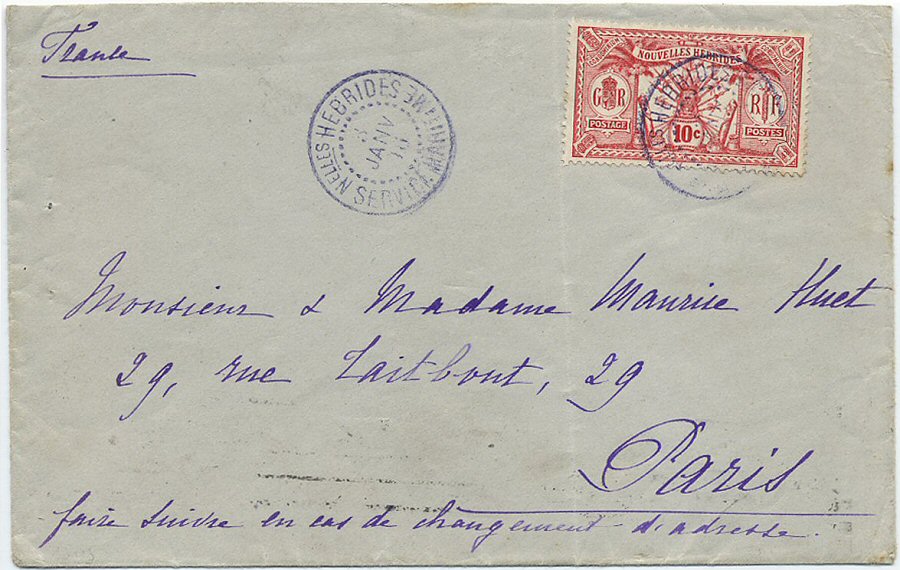 France
NELLES HEBRIDES
3
JANV
SERVICE MARITIME
NOUVELLES HEBRIDES
G R
R F
POSTAGE
10c
POSTES
HEBRIDES
Monsieur & Madame Maurice Huet
29, rue Taitbout, 29
Paris
faire suivre en cas de changement d'adresse.